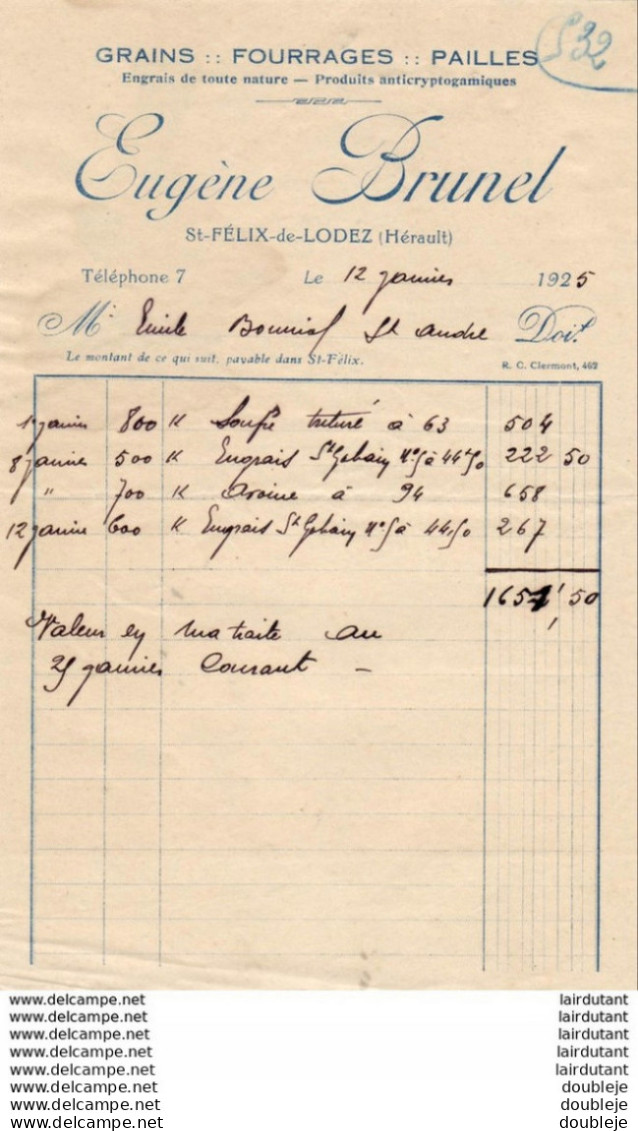 532
GRAINS :: FOURRAGES :: PAILLES
Engrais de toute nature — Produits anticryptogamiques
Eugène Brunel
St-FÉLIX-de-LODEZ (Hérault)
Téléphone 7 Le 12 janvier 1925
Mr Emile Bonniol St André Doit
Le montant de ce qui suit, payable dans St-Félix. R. C. Clermont, 462
1 janvier 800 K Soufre trituré à 63 504
8 janvier 500 K Engrais St Gobain N°5 à 44,50 222 50
" 700 K Avoine à 94 658
12 janvier 600 K Engrais St Gobain N°5 à 44,50 267
1651,50
Valeur en ma traite au
25 janvier courant —
www.delcampe.net lairdutant
www.delcampe.net lairdutant
www.delcampe.net lairdutant
www.delcampe.net lairdutant
www.delcampe.net lairdutant
www.delcampe.net doubleje
www.delcampe.net doubleje
www.delcampe.net doubleje